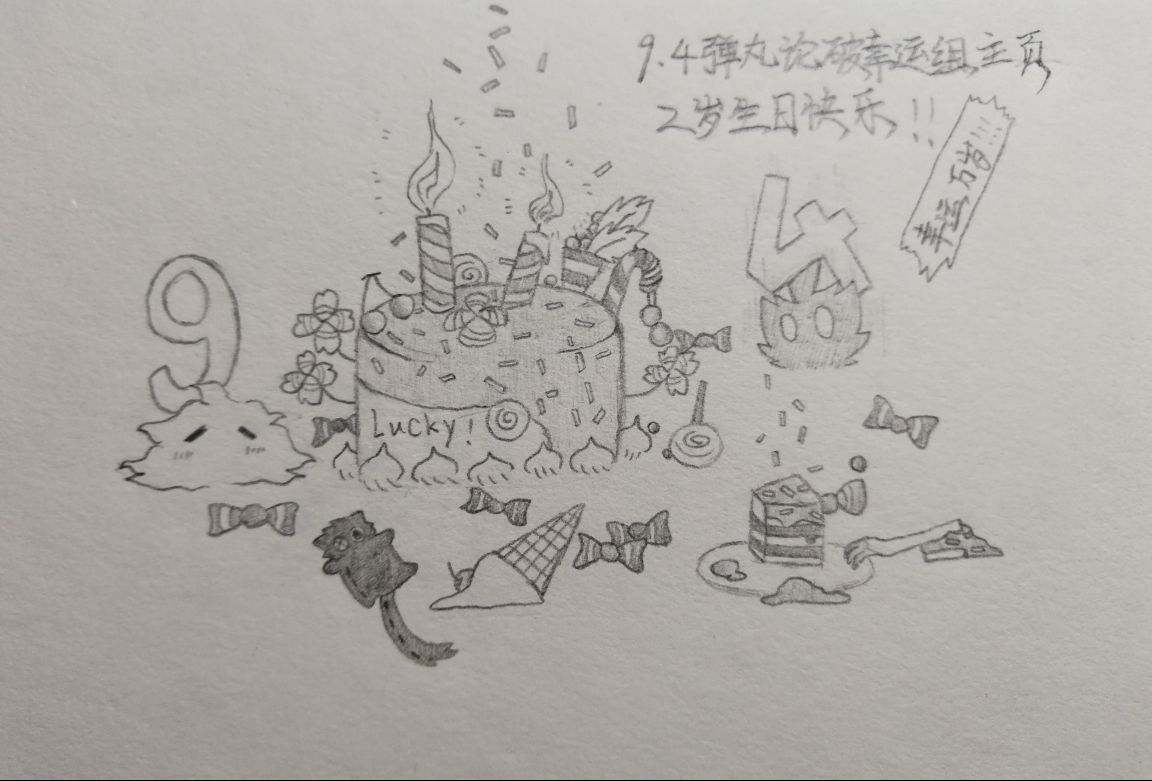 9.4弹丸论破幸运组主页
2岁生日快乐!!
幸运万岁!!!
9
4
Lucky!